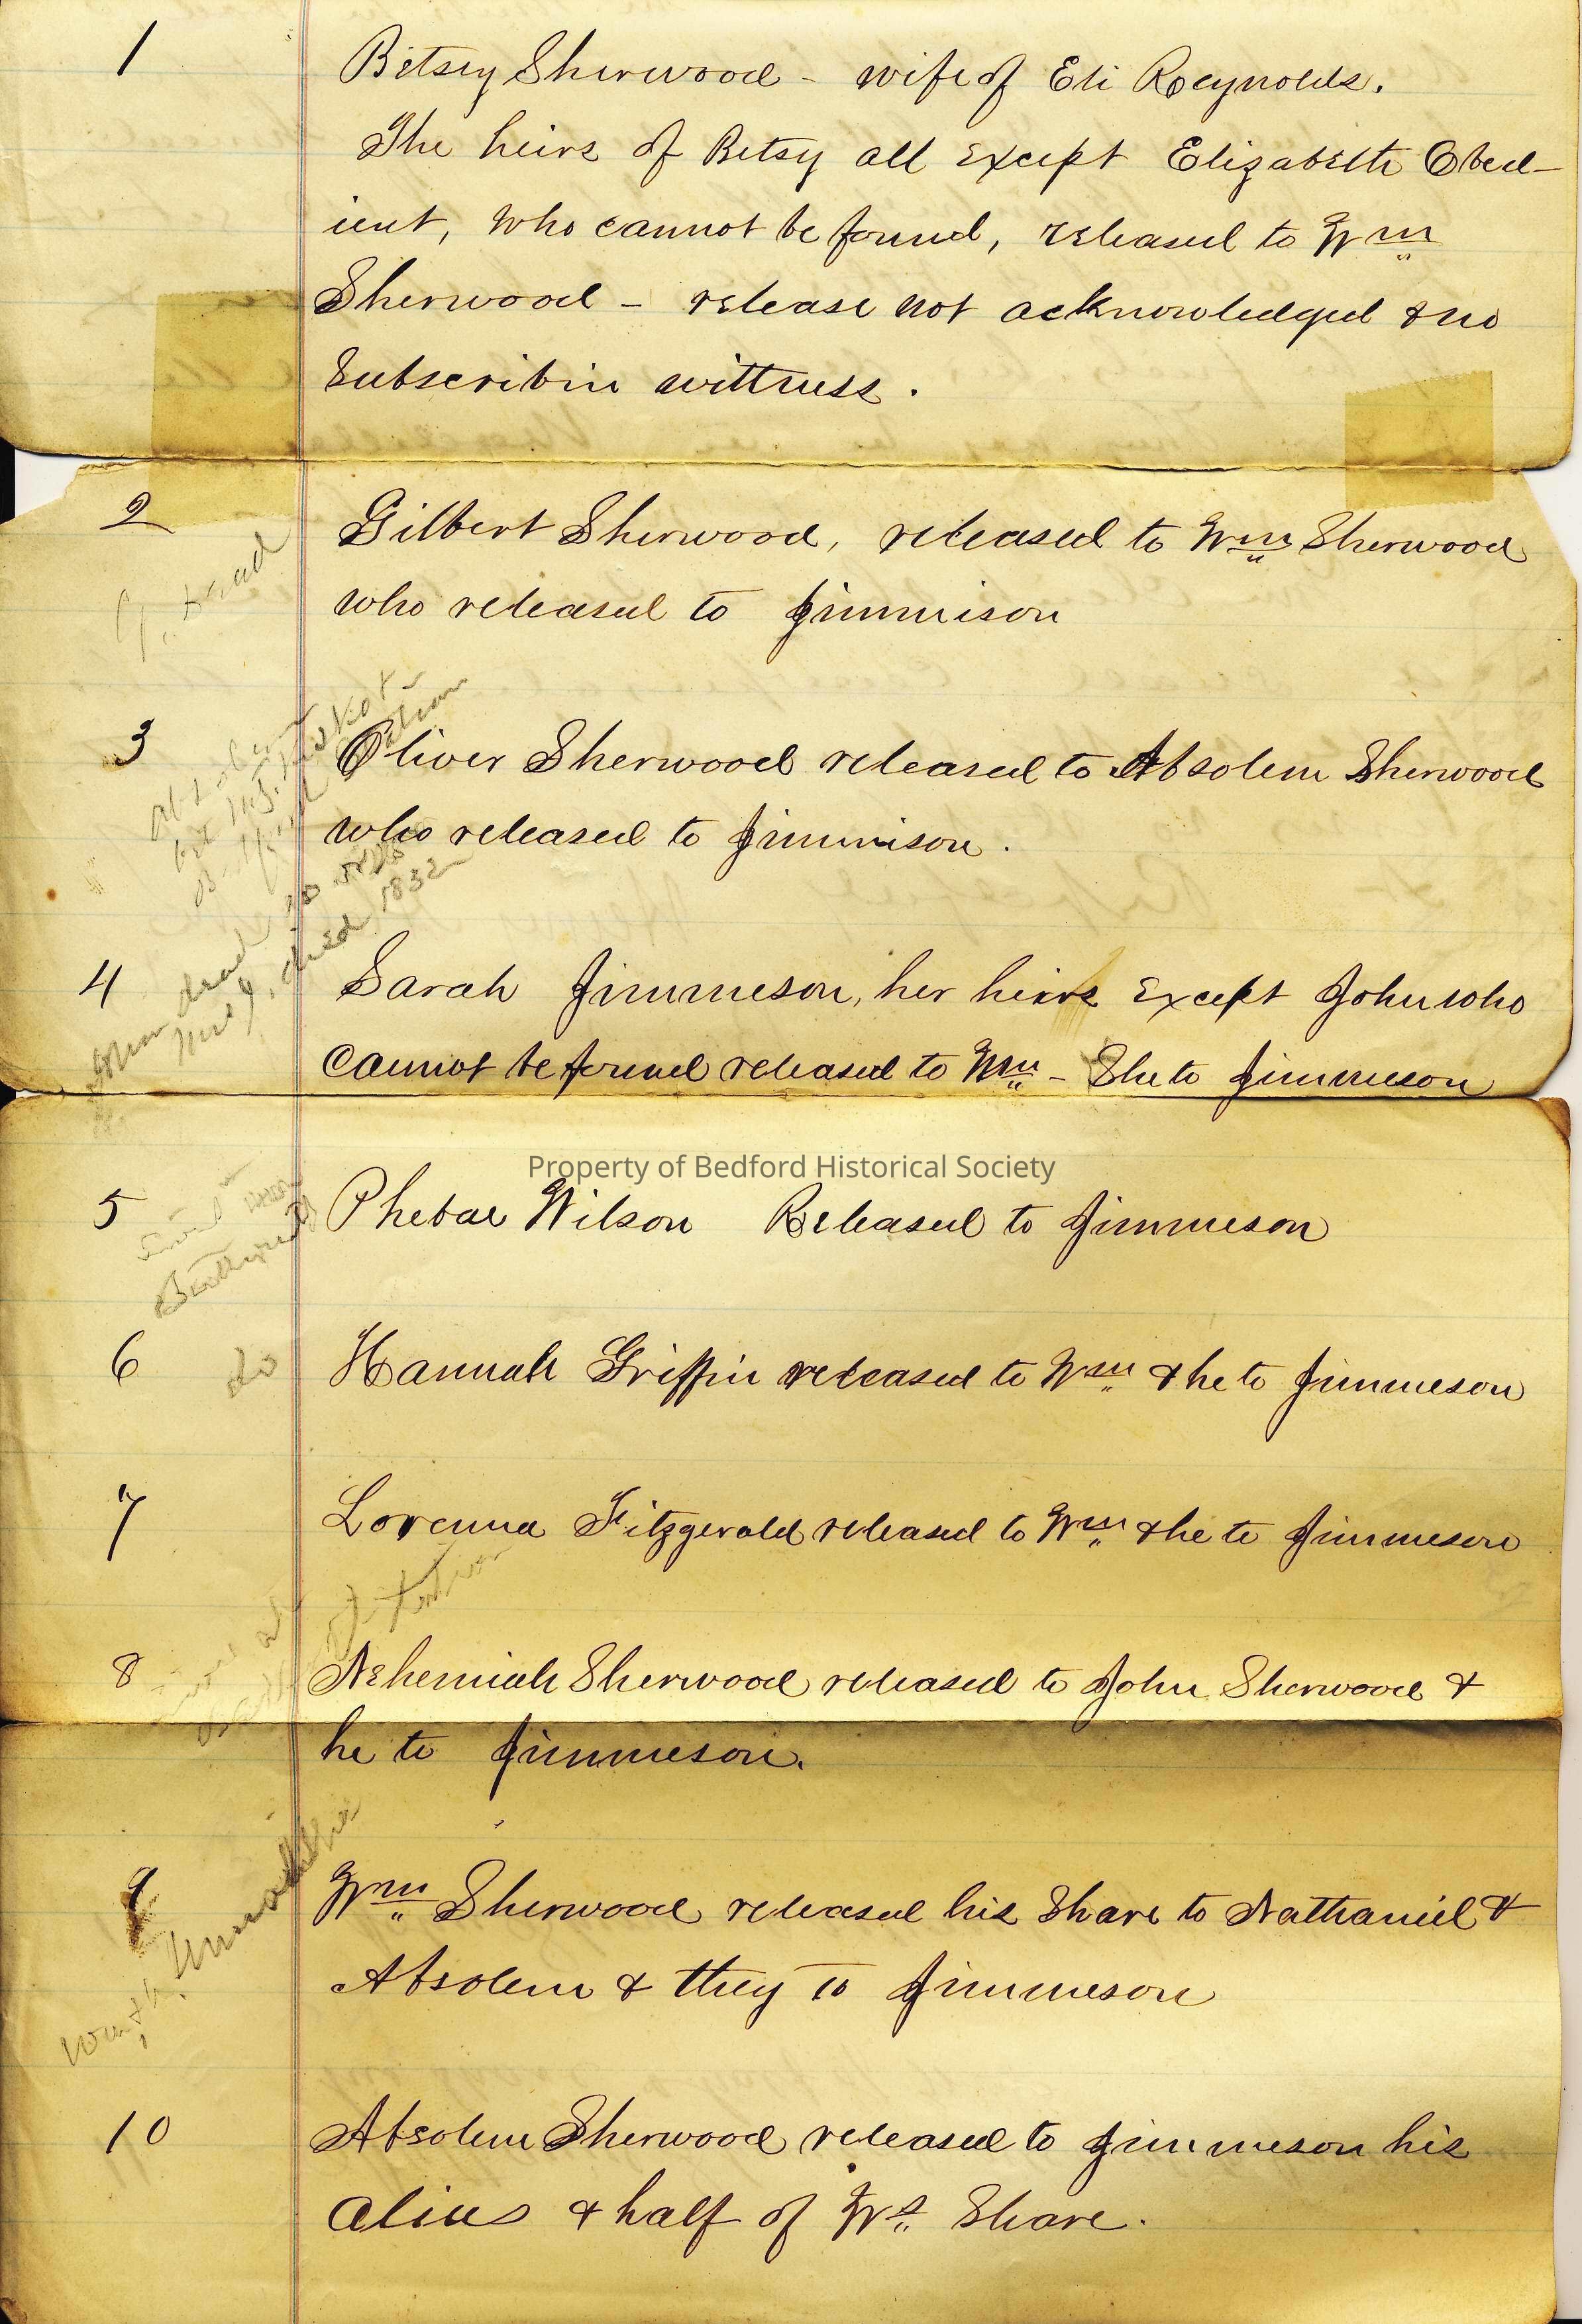 1 Betsey Sherwood - wife of Eli Reynolds.
The heirs of Betsy all except Elizabeth Obed-
ient, who cannot be found, released to Wm
Sherwood - release not acknowledged & no
Subscribin wittness.
2 Gilbert Sherwood, released to Wm Sherwood
dead
who released to Jimmison
3 Oliver Sherwood released to Absolem Sherwood
who released to Jimmison.
died 1832
4 Sarah Jimmeson, her heirs except John who
dead
cannot be found released to Wm - She to Jimmeson
Property of Bedford Historical Society
5 Phebae Wilson Released to Jimmeson
6 do Hannah Griffin released to Wm & he to Jimmeson
7 Lorenna Fitzgerald released to Wm & he to Jimmeson
8 Nehemiah Sherwood released to John Sherwood &
he to Jimmeson.
9 Wm Sherwood released his Share to Nathaniel &
Absolem & they to Jimmeson
10 Absolem Sherwood released to Jimmeson his
& half of Ws Share.